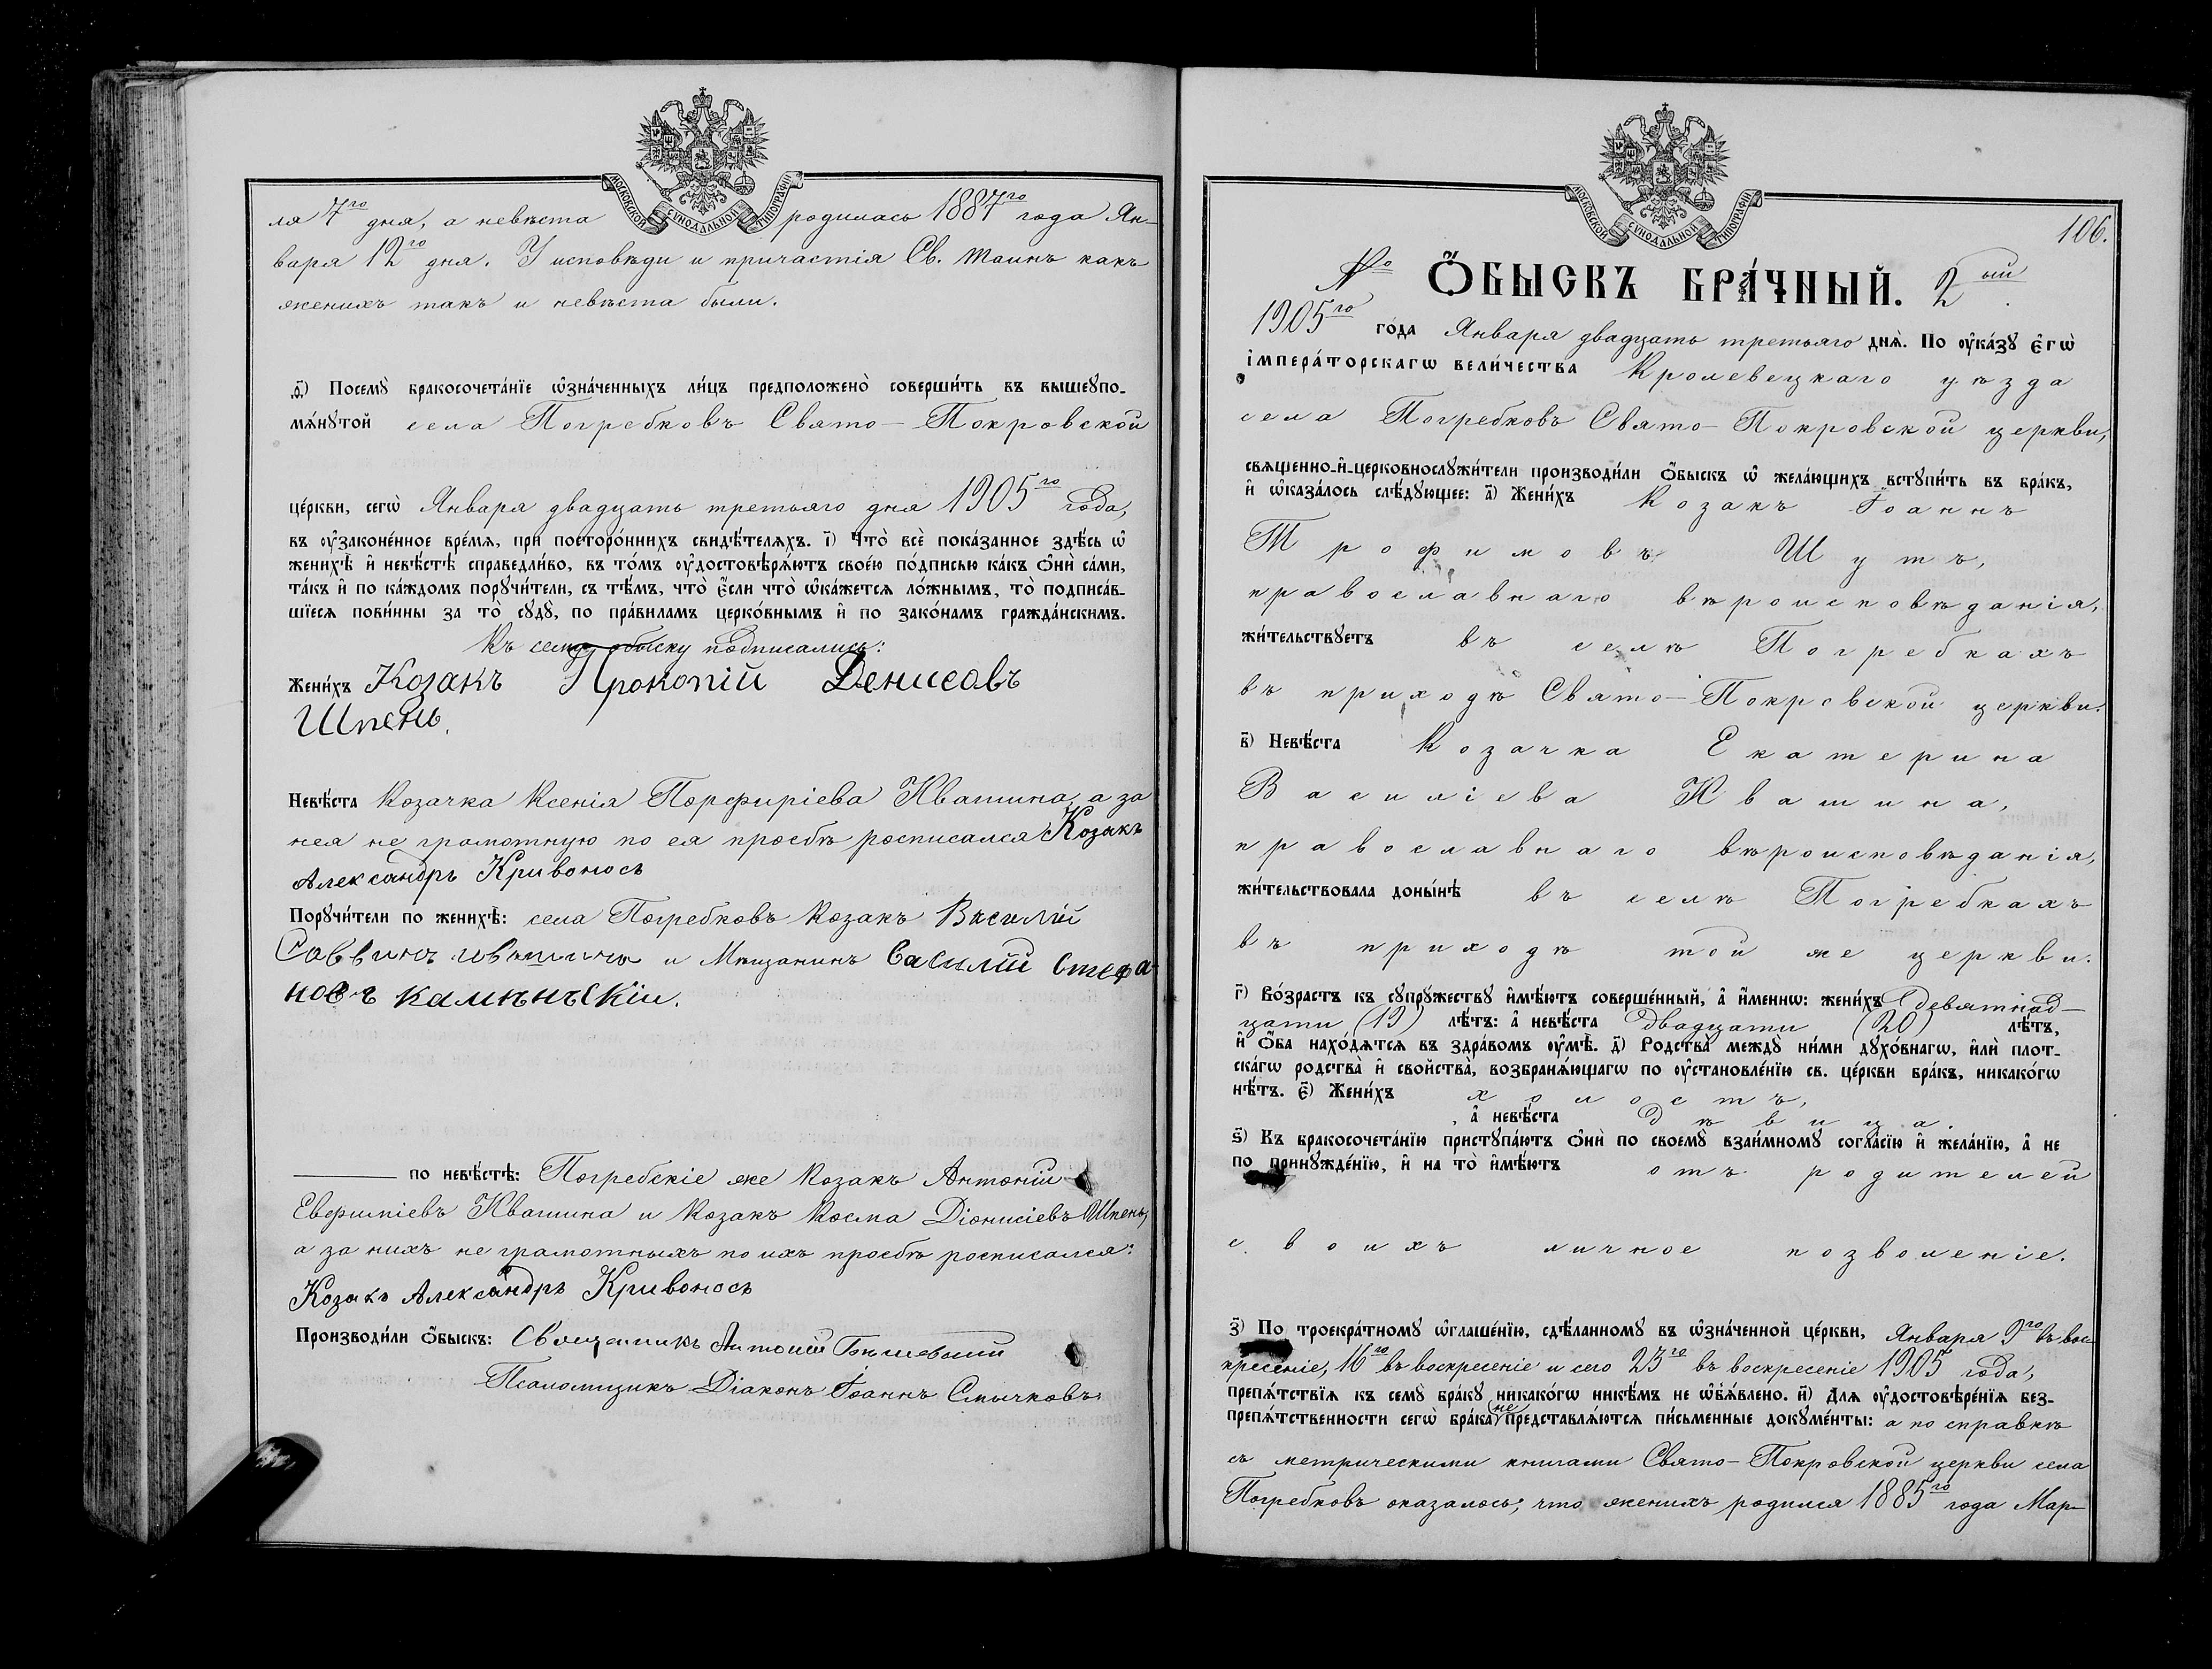 МОСКОВСКОЙ СѴНОДАЛЬНОЙ ТИПОГРАФІИ
ля 7го дня, а невѣста родилась 1884го года Ян-
варя 12го дня. У исповѣди и причастія Св. Таинъ какъ
женихъ такъ и невѣста были.
ѳ҃) Посемꙋ̀ бракосочета́нїе ѡ҆зна́ченныхъ ли́цъ предположено̀ соверши́ть въ вышеꙋпо-
мѧ́нꙋтой села Погребковъ Свято-Покровской
це́ркви, сегѡ̀ Января двадцать третьяго дня 1905го года,
въ ᲂу҆зако́ненное вре́мѧ, при посторо́ннихъ свидѣ́телѧхъ. і҃) Что̀ всѐ пока́занное здѣ́сь ѡ҆
женихѣ̀ и҆ невѣ́стѣ справедли́во, въ то́мъ ᲂу҆достовѣрѧ́ютъ свое́ю по́дписью ка́къ ѻ҆нѝ са́ми,
та́къ и҆ по ка́ждомъ порꙋчи́тели, съ тѣ́мъ, что̀ є҆́сли что̀ ѡ҆ка́жетсѧ ло́жнымъ, то̀ подписа́в-
шїесѧ пови́нны за то̀ сꙋдꙋ̀, по пра́виламъ церко́внымъ и҆ по зако́намъ гражда́нскимъ.
Къ сему обыску подписались:
Жени́хъ Козакъ Прокопій Денисовъ
Шпень.
Невѣ́ста Козачка Ксенія Порфиріева Квашина, а за
нея не грамотную по ея просбѣ росписался Козакъ
Александръ Кривоносъ
Порꙋчи́тели по женихѣ̀: села Погребковъ Козакъ Василій
Саввинъ и Мѣщанинъ Василій Стефа-
новъ каменѣскій.
по невѣ́стѣ: Погребскіе же Козакъ Антоній
Евфиміевъ Квашина и Козакъ Косма Діонисіевъ Шпень,
а за нихъ не грамотныхъ по ихъ просбѣ росписался:
Козакъ Александръ Кривоносъ
Производи́ли ѻ҆́быскъ: Священникъ Антоній
Псаломщикъ Діаконъ Іоаннъ Смычковъ.
МОСКОВСКОЙ СѴНОДАЛЬНОЙ ТИПОГРАФІИ
106.
№ Ѻ҆́БЫСКЪ БРА́ЧНЫЙ. 2ый.
1905го го́да Января двадцать третьяго днѧ̀. По ᲂу҆ка́зꙋ є҆гѡ̀
і҆мпера́торскагѡ вели́чества Кролевецкаго уѣзда
села Погребковъ Свято-Покровской церкви,
свѧщенно-и҆-церковнослꙋжи́тели производи́ли ѻ҆́быскъ ѡ҆ жела́ющихъ вступи́ть въ бра́къ,
и҆ ѡ҆каза́лось слѣ́дꙋющее: а҃) Жени́хъ Козакъ Іоаннъ
Трофимовъ Шутъ,
православнаго вѣроисповѣданія,
жи́тельствꙋетъ въ селѣ Погребкахъ
въ приходѣ Свято-Покровской церкви.
в҃) Невѣ́ста Козачка Екатерина
Василіева Квашина,
православнаго вѣроисповѣданія,
жи́тельствовала доны́нѣ въ селѣ Погребкахъ
въ приходѣ той же церкви.
г҃) Во́зрастъ къ сꙋпрꙋ́жествꙋ и҆мѣ́ютъ соверше́нный, а҆ и҆́меннѡ: жени́хъ девятнад-
цати (19) лѣ́тъ: а҆ невѣ́ста двадцати (20) лѣ́тъ,
и҆ ѻ҆́ба нахо́дѧтсѧ въ здра́вомъ ᲂу҆мѣ̀. д҃) Родства̀ междꙋ̀ ни́ми дꙋхо́внагѡ, и҆лѝ плот-
ска́гѡ родства̀ и҆ свойства̀, возбранѧ́ющагѡ по ᲂу҆становле́нїю св. це́ркви бра́къ, никако́гѡ
нѣ́тъ. є҃) Жени́хъ холостъ,
, а҆ невѣ́ста дѣвица.
ѕ҃) Къ бракосочета́нїю пристꙋпа́ютъ ѻ҆нѝ по своемꙋ̀ взаи́мномꙋ согла́сїю и҆ жела́нїю, а҆ не
по принꙋжде́нїю, и҆ на то̀ и҆мѣ́ютъ отъ родителей
своихъ личное позволеніе.
з҃) По троекра́тномꙋ ѡ҆глаше́нїю, сдѣ́ланномꙋ въ ѡ҆зна́ченной це́ркви, Января 9го въ вос-
кресеніе, 16го въ воскресеніе и сего 23го въ воскресеніе 1905 года,
препѧ́тствїѧ къ семꙋ̀ бра́кꙋ никако́гѡ никѣ́мъ не ѡ҆б̾ѧ́влено. и҃) Для ᲂу҆достовѣре́нїѧ без-
препѧ́тственности сегѡ̀ бра́ка не представлѧ́ютсѧ пи́сьменные докꙋме́нты: а по справкѣ
съ метрическими книгами Свято-Покровской церкви села
Погребковъ оказалось, что женихъ родился 1885го года Мар-